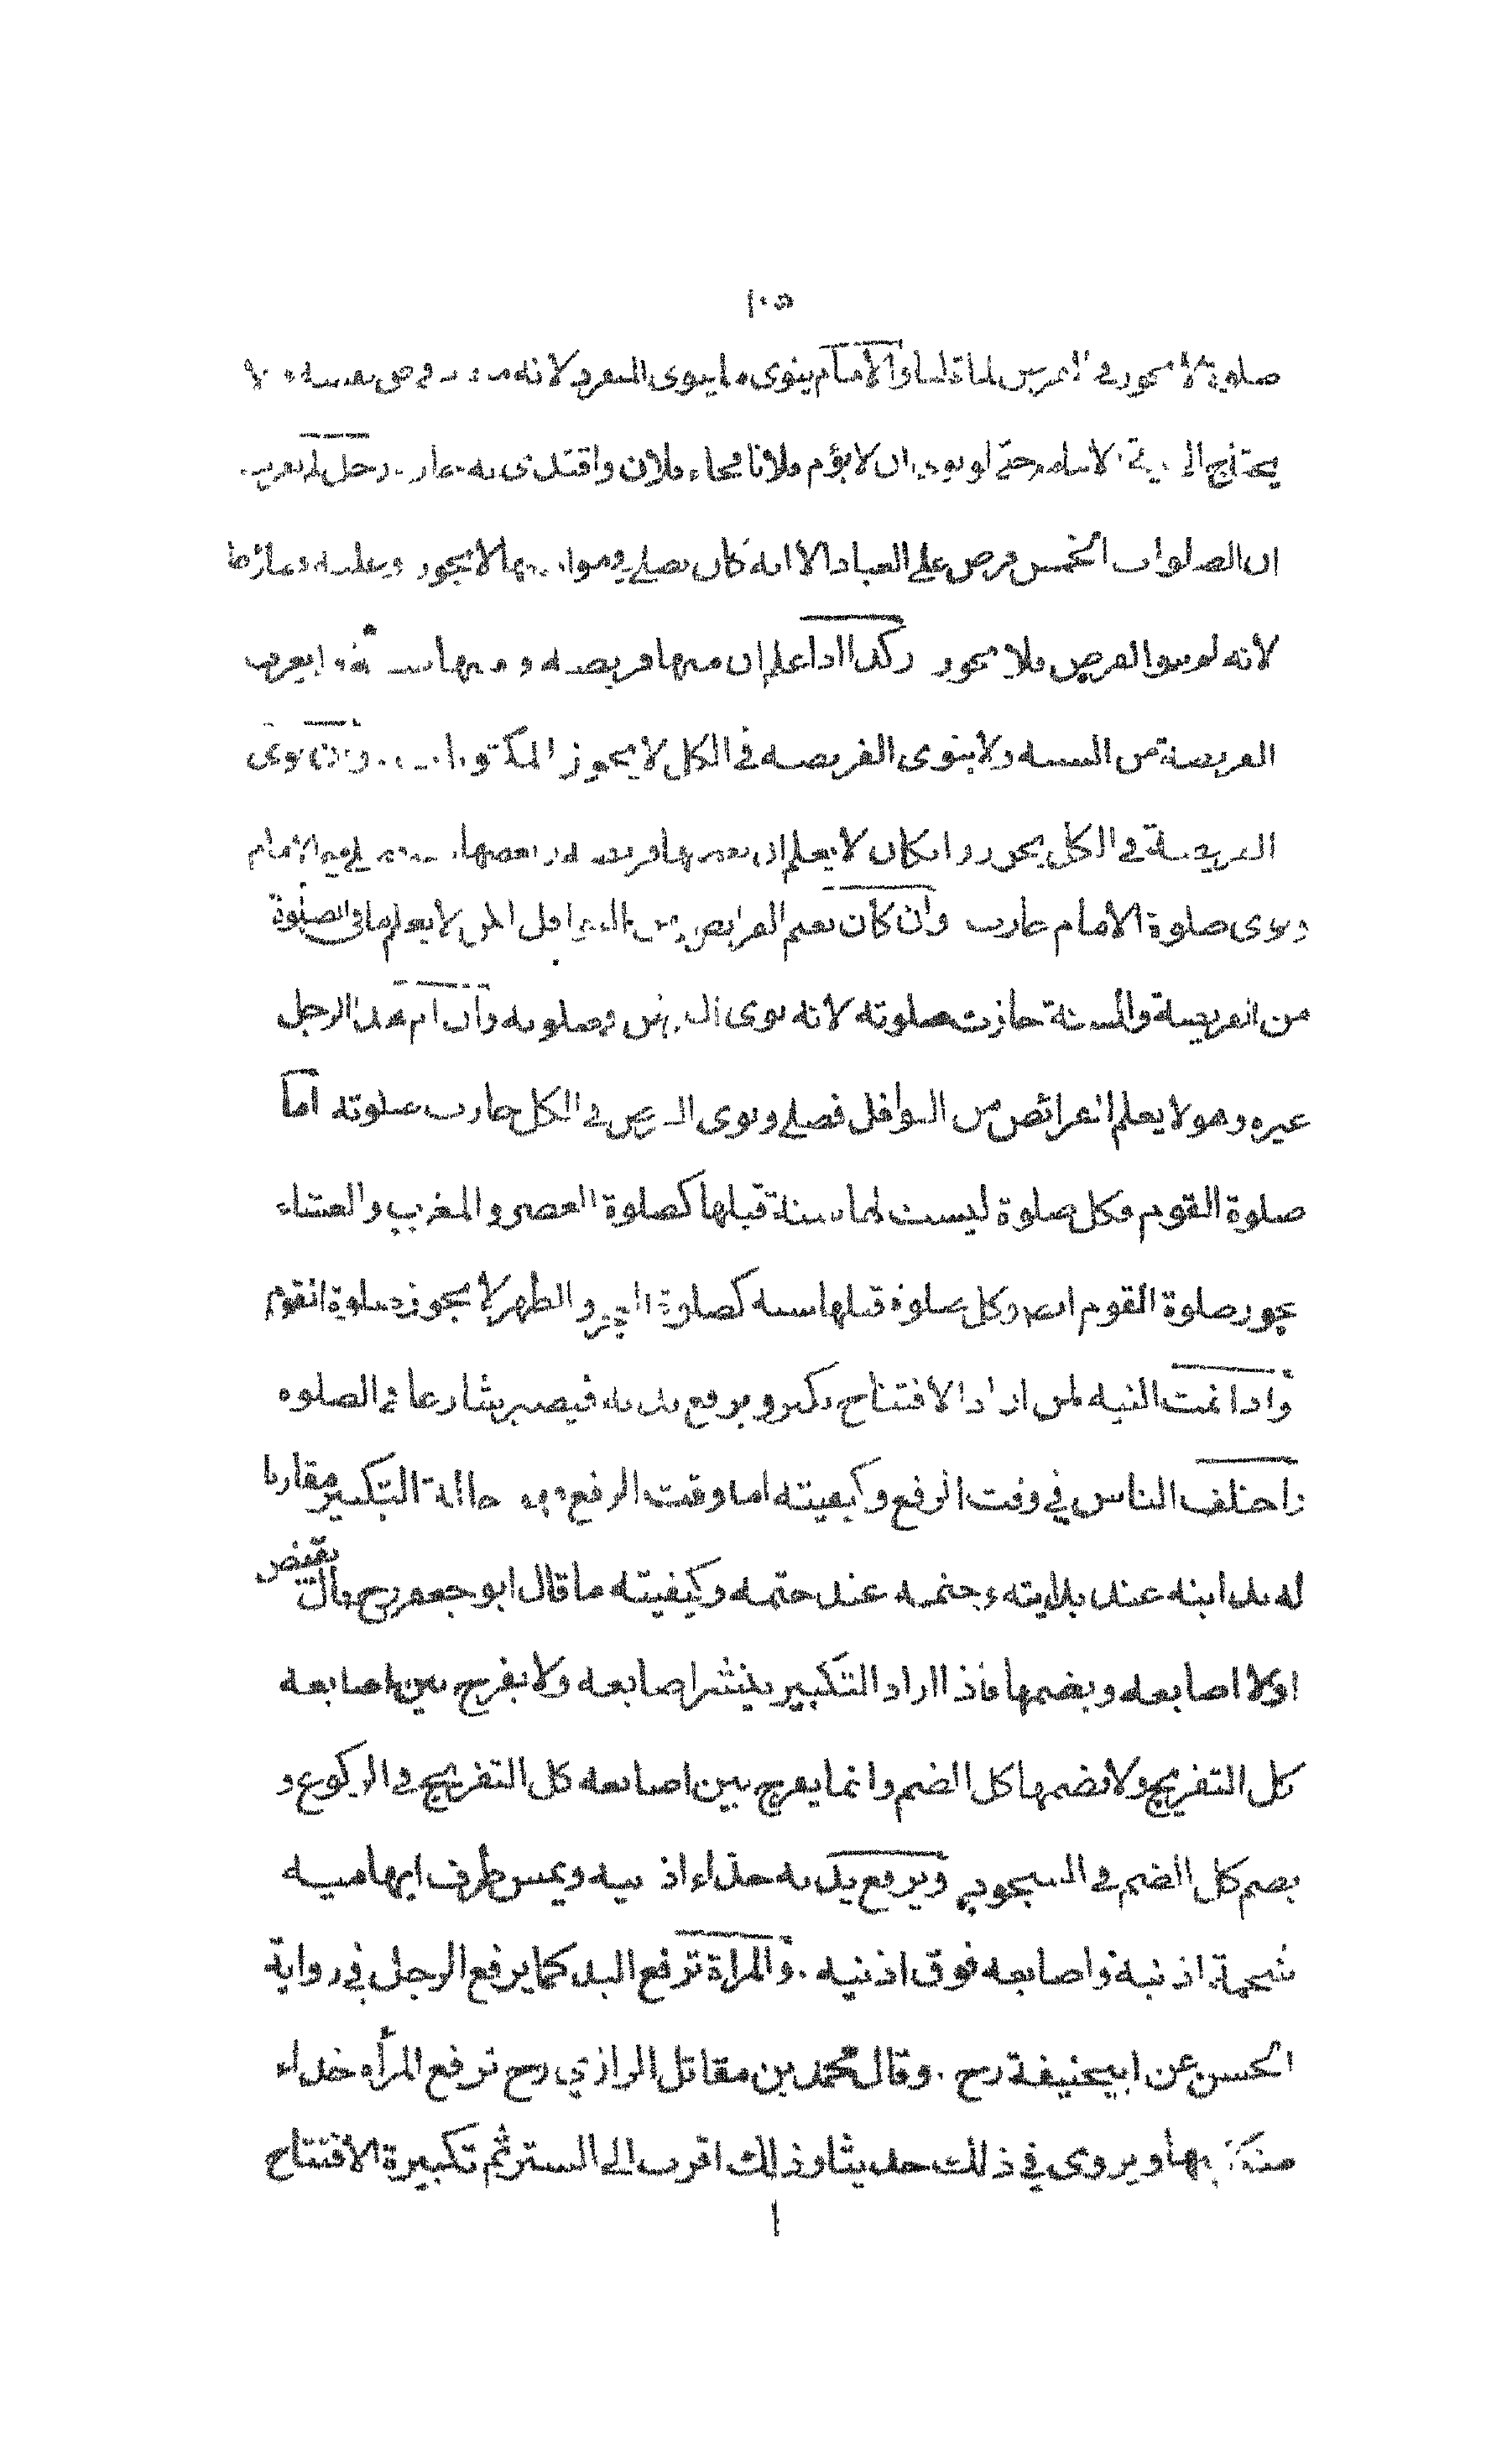 ١٠٥
صلوة لا يجوز في لما قلنا والامام ينوى ما ينوى المنفرد لانه في حق نفسه ولا
يحتاج الى نية الامامة حتى لو نوى ان لا يؤم فلانا فجاء فلان واقتدى به جاز رجل لم يعرف
ان الصلوات الخمس فرض على العباد الا انه كان يصلي في مواقيتها لا يجوز وعليه قضاؤها
لانه لم ينو الفرض فلا يجوز وكذا اذا علم ان منها فريضة ومنها سنة ولم يعرف
الفريضة من السنة ولا ينوى الفريضة في الكل لا يجوز المكتوبات وان نوى
الفريضة في الكل يجوز وان كان لا يعلم ان بعضها فريضة وبعضها سنة فصلى مع الامام
ونوى صلوة الامام جازت وان كان يعلم الفرائض من النوافل لكن لا يعلم ما في الصلوة
من الفريضة والسنة جازت صلوته لانه نوى الفرض في صلوته وان ام هذا الرجل
غيره وهو لا يعلم الفرائض من النوافل فصلى ونوى الفرض في الكل جازت صلوته اما
صلوة القوم فكل صلوة ليست لها سنة قبلها كصلوة العصر والمغرب والعشاء
يجوز صلوة القوم ايضا وكل صلوة قبلها سنة كصلوة الفجر والظهر لا يجوز صلوة القوم
واذا تمت النية لمن اراد الافتتاح يكبر ويرفع يديه فيصير شارعا في الصلوة
واختلف الناس في وقت الرفع وكيفيته اما وقت الرفع حالة التكبير مقارنا
له بدايته عند بدايته وختمه عند ختمه وكيفيته ما قال ابو جعفر رح قال يقبض
اولا اصابعه ويضمها فاذا اراد التكبير ينشر اصابعه ولا يفرج بين اصابعه
كل التفريج ولا يضمها كل الضم وانما يفرج بين اصابعه كل التفريج في الركوع و
يضم كل الضم في السجود ويرفع يديه حذاء اذنيه ويمس طرف ابهاميه
شحمة اذنيه واصابعه فوق اذنيه . والمراة ترفع اليد كما يرفع الرجل في رواية
الحسن عن ابيحنيفة رح . وقال محمد بن مقاتل الرازي رح ترفع المرأة حذاء
منكبيها ويروى في ذلك حديثا وذلك اقرب الى الستر ثم تكبيرة الافتتاح